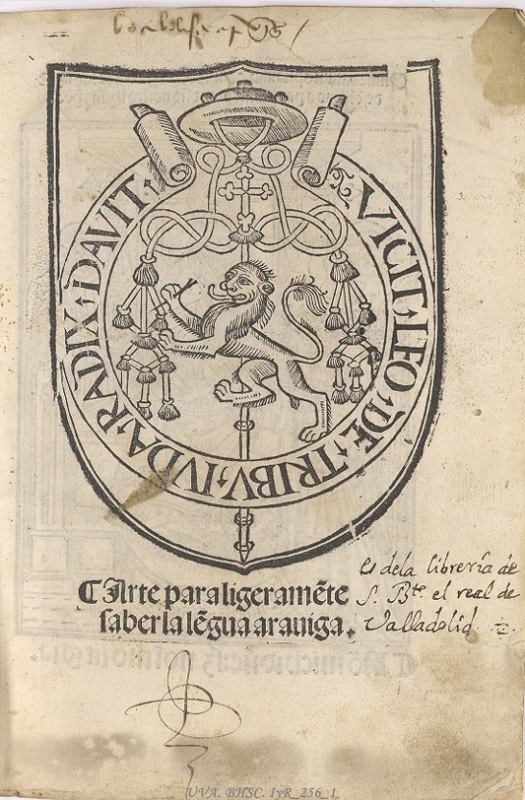 VICIT · LEO · DE · TRIBV · IVDA · RADIX · DAVIT ·
¶ Arte para ligeramẽte
saber la lẽgua arauiga.
es dela librería de
S. B.to el real de
Valladolid
UVA. BHSC. IyR_256_1